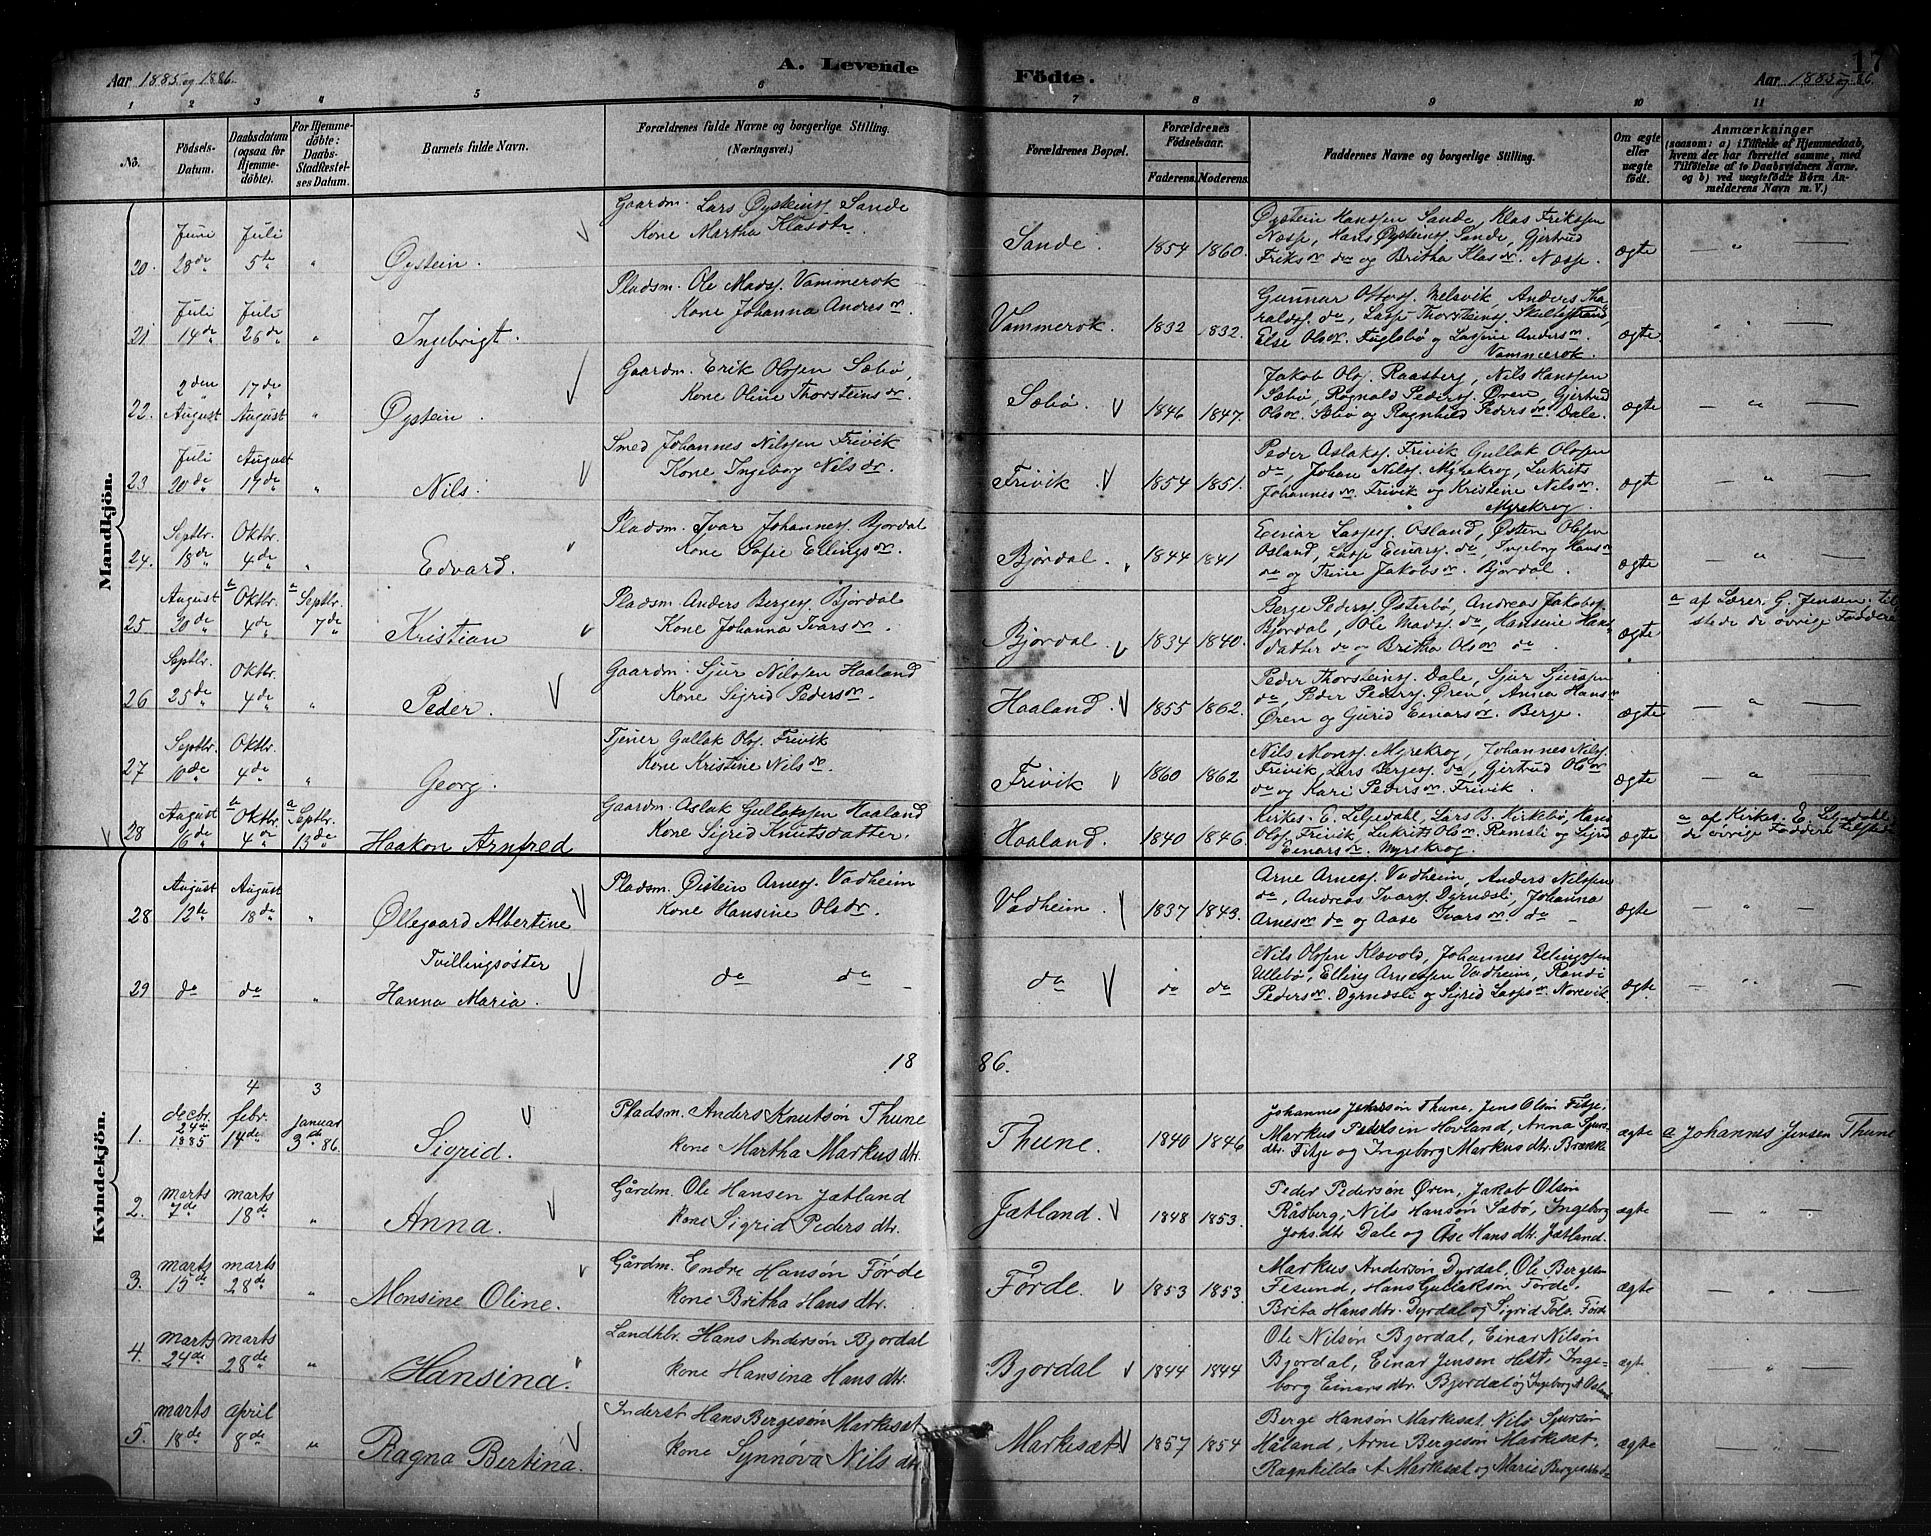 17
Aar 1885 og 1886.
A. Levende Födte.
Aar 1885 og 86.
1 2 3 4 5 6 7 8 9 10 11
No.
Födsels-Datum.
Daabsdatum (ogsaa for Hjemme-döbte).
For Hjemme-döbte: Daabs-Stadfæstel-ses Datum.
Barnets fulde Navn.
Forældrenes fulde Navne og borgerlige Stilling. (Næringsvei.)
Forældrenes Bopæl.
Forældrenes Födselsaar.
Faderens. Moderens.
Faddernes Navne og borgerlige Stilling.
Om ægte eller uægte födt.
Anmærkninger
(saasom: a) i Tilfælde af Hjemmedaab,
hvem der har forrettet samme, med
Tilföielse af to Daabsvidners Navne.
og b) ved uægtefödte Börn An-
melderens Navn m. V.)
Mandkjön.
20. Juni 28de Juli 5te " Øystein.
Gaardm. Lars Øysteinss. Sande
Kone Martha Klasdtr.
Sande. 1854 1860.
Øystein Hanssen Sande, Klas Erikssen
Næsse, Hans Øysteinss. Sande, Gjertrud
Eriksdr. do og Britha Klasdr. Næsse.
ægte — " —
21 Juli 14de Juli 26de " Ingebrigt.
Pladsm. Ole Madss. Vammerok
Kone Johanna Andersdr
Vammerok. 1832 1832.
Gunnar Melsvik, Anders Tha-
raldss. do, Lasse Thorsteinss.
Else Olsdr. Fuglebø og Andersdr.
Vammerok.
ægte " —
22. 2den August 17de August " Øystein.
Gaardm. Erik Olssen Sæbø,
Kone Oline Thorsteinsdr.
Sæbø. 1846 1847.
Jakob Ols. Raasberg, Nils Hanssen
Sæbø, Ragnald Pederss. Øren, Gjertrud
Olsdr. Sæbø og Ragnhild Pedersdr. Dale.
ægte — " —
23 Juli 20de August 17de " Nils.
Smed Johannes Nilssen Frivik
Kone Ingeborg Nilsdr.
Frivik. 1854 1851.
Peder Aslakss. Frivik Gullak Olssen
do, Johan Nilss. Myrekrog, Lukrits
Johannesdr. Frivik og Kristine Nilsdr.
Myrekrog.
ægte — " —
24. Septbr. 18de Oktbr. 4de " Edvard.
Pladsm. Ivar Johanness. Bjordal
Kone Sofie Ellingsdr.
Bjørdal. 1844 1841
Einar Lasses. Osland, Østen Olssen
Osland, Lasse Einarss. do, Ingeborg Hansdr
do og Trine Jakobsdr. Bjørdal.
ægte " —
25 August 20de a Oktbr. 4de a Septbr. 7de Kristian
Pladsm. Anders Bergess. Bjordal
Kone Johanna Ivarsdr.
Bjørdal 1834 1840.
Berge Pederss. Østerbø, Andreas Jakobss.
Bjordal, Ole Madss. do, Hansine Hans-
datter do og Britha Olsdr do.
ægte
a af Lærer G. Jensen. til-
stede de øvrige Faddere
26 Septbr. 25de Oktbr. 4de " Peder.
Gaardm. Sjur Nilssen Haaland
Kone Sigrid Pedersdr.
Haaland. 1855 1862.
Peder Thorsteinss. Dale, Sjur Sjurssen
do, Peder Pederss. Øren, Anna Hansdr
Øren og Gurid Einarsdr. Berge.
ægte — " —
27 Septbr. 10de Oktbr. 4de " Georg.
Tjener Gullak Olss. Frivik
Kone Kristine Nilsdr.
Frivik 1860 1862
Nils Monss. Myrekrog, Johannes Nilss.
Frivik, Lars Bergess. do, Gjertrud Olsdr
do og Kari Pedersdr. Frivik.
ægte — " —
28 August 16de a Oktbr. 4de a Septbr. 13de Haakon Arnfred
Gaardm. Aslak Gullakssen Haaland
Kone Sigrid Knutsdatter.
Haaland. 1840 1846.
Kirkes. E. Liljedahl, Lars B. Kirkebø, Hans
Olss. Frivik, Lukrits Olsdr. Ramsli og Sigrid
Einarsdr. Myrekrog.
ægte
a af Kirkes. E. Liljedahl,
de øvrige Faddere tilstede
Kvindekjön.
28 August 12te August 18de " Øllegaard Albertine
Pladsm. Øistein Arness. Vadheim
Kone Hansine Olsdr.
Vadheim. 1837 1843.
Arne Arness. Vadheim, Anders Nilssen
do, Andreas Ivarss. Dyrndsli, Johanna
Arnesdr do og Aase Ivarsdr. do
ægte — " —
29 do do " Tvillingsøster
Hanna Maria.
do do
do do do
Nils Olssen Klævold, Johannes Ellingssen
Ullebø, Elling Arnessen Vadheim, Randi
Pedersdr. Dyrndsli og Sigrid Lassesdr. Norevik.
ægte. — " —
1886.
4 3
1. decbr. 24de 1885 febr. 14de januar 3de 86. Sigrid.
Pladsm. Anders Knutsøn Thune
kone Martha Markusdtr.
Thune. 1840 1846
Johannes Jensøn Thune, Jens Olsøn Fitje,
Markus Pedersen Hovland, Anna Sjurs-
dtr. Fitje og Ingeborg Markusdtr. Brække
ægte a Johannes Jensen Thune
2. marts 7de marts 18de " Anna.
Gårdm. Ole Hansen Jætland
kone Sigrid Pedersdtr.
Jætland. 1848 1853.
Peder Pedersøn Øren, Jakob Olsøn
Råsberg, Nils Hansøn Sæbø, Ingeborg
Johs.dtr. Dale og Åse Hansdtr. Jætland.
ægte — " —
3. marts 15de marts 28de " Monsine Oline.
Gårdm. Endre Hansøn Førde
kone Britha Hansdtr.
Førde. 1853 1853.
Markus Andersøn Dyrdal, Ole Bergesøn
Hans Gullaksøn Førde,
Brita Hansdtr. Dyrdal og Sigrid Førde
ægte — " —
4. marts 24de marts 28de " Hansina.
Landhbr. Hans Andersøn Bjordal
kone Hansina Hansdtr.
Bjordal 1844 1844
Ole Nilsøn Bjordal, Einar Nilsøn
Bjordal, Einar Jensen Hest, Inge-
borg Einarsdtr. Bjordal og Ingeborg A Osland
ægte " —
5. marts 18de april 8de " Ragna Bertina.
Inderst Hans Bergesøn Markesæt
kone Synnøva Nilsdtr.
Markesæt 1857 1854
Berge Hansøn Markesæt, Nils Sjursøn
Håland, Arne Bergesøn Markesæt,
Ragnhilda A Markesæt og Marie Bergesdtr do
ægte " —